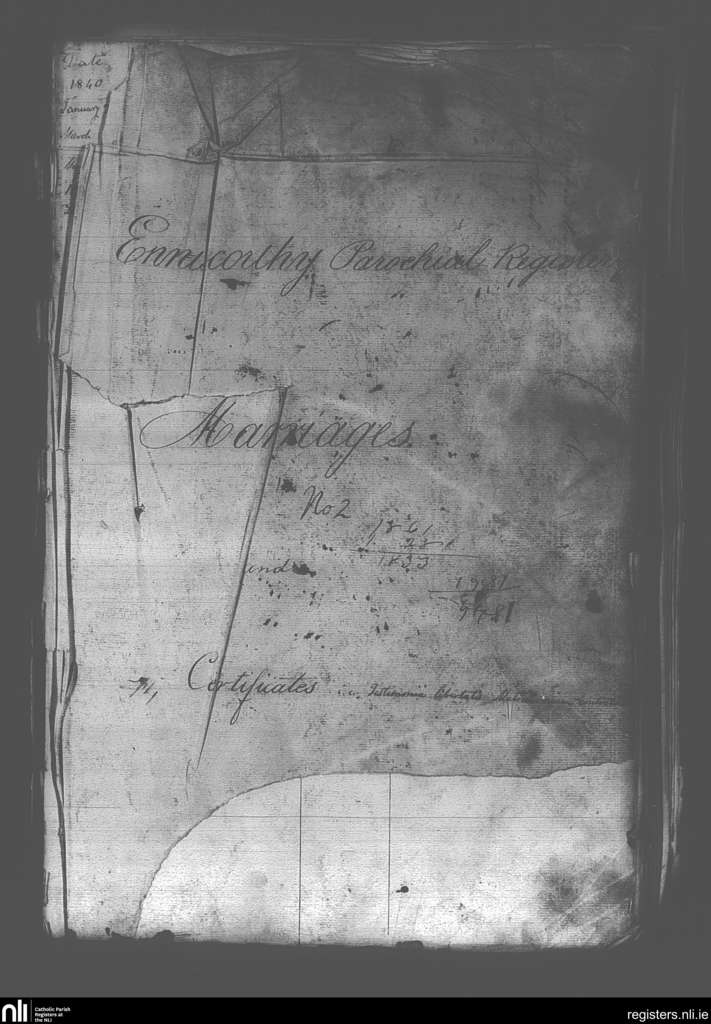 Date
1840
January
March
Enniscorthy Parochial Register
Marriages
No 2
1861
28
1833
and
Certificates
Testimonia
nli
Catholic Parish
Registers at
the NLI
registers.nli.ie